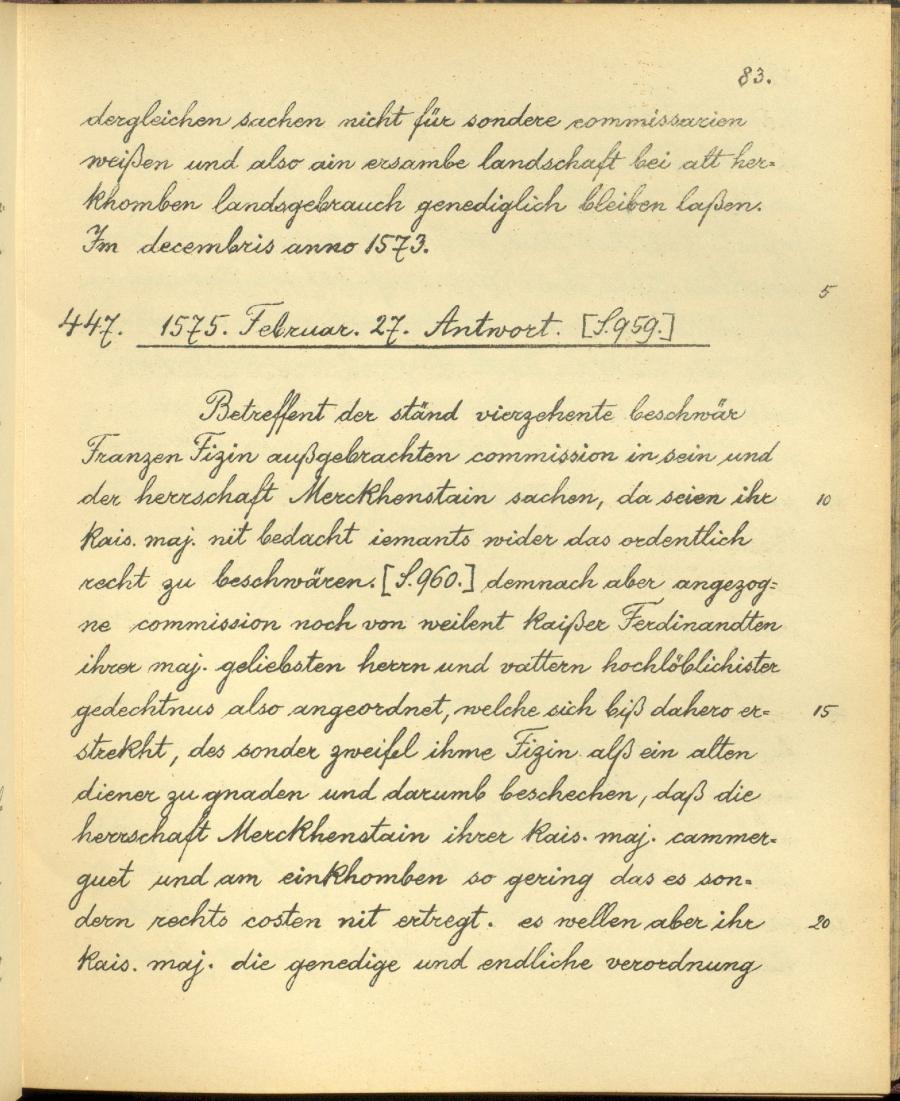 83.
dergleichen sachen nicht für sondere commissarien
weißen und also ain ersambe landschaft bei alt her=
khomben landsgebrauch genediglich bleiben laßen.
Im decembris anno 1573.
5
447. 1575. Februar. 27. Antwort. [S.959.]
Betreffent der ständ vierzehente beschwär
Franzen Fizin außgebrachten commission in sein und
der herrschaft Merckhenstain sachen, da seien ihr 10
kais. maj. nit bedacht iemants wider das ordentlich
recht zu beschwären. [S.960.] demnach aber angezog=
ne commission noch von weilent kaißer Ferdinandten
ihrer maj. geliebsten herrn und vattern hochlöblichister
gedechtnus also angeordnet, welche sich biß dahero er= 15
strekht, des sonder zweifel ihme Fizin alß ein alten
diener zu gnaden und darumb beschechen, daß die
herrschaft Merckhenstain ihrer kais. maj. cammer=
guet und am einkhomben so gering das es son=
dern rechts costen nit ertregt. es wellen aber ihr 20
kais. maj. die genedige und endliche verordnung